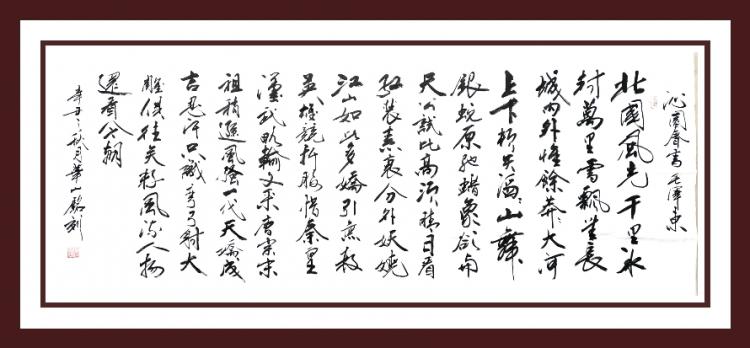 沁園春雪 毛澤東
北國風光千里冰
封萬里雪飄望長
城內外惟餘莽大河
上下頓失滔滔山舞
銀蛇原馳蠟象欲與
天公試比高須晴日看
紅裝素裹分外妖嬈
江山如此多嬌引無數
英雄競折腰惜秦皇
漢武略輸文采唐宗宋
祖稍遜風騷一代天驕成
吉思汗只識彎弓射大
雕俱往矣數風流人物
還看今朝
辛丑秋月華山銘利